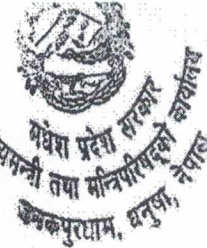 मधेश प्रदेश सरकार
मुख्यमन्त्री तथा मन्त्रिपरिषद्को कार्यालय
जनकपुरधाम, धनुषा, नेपाल